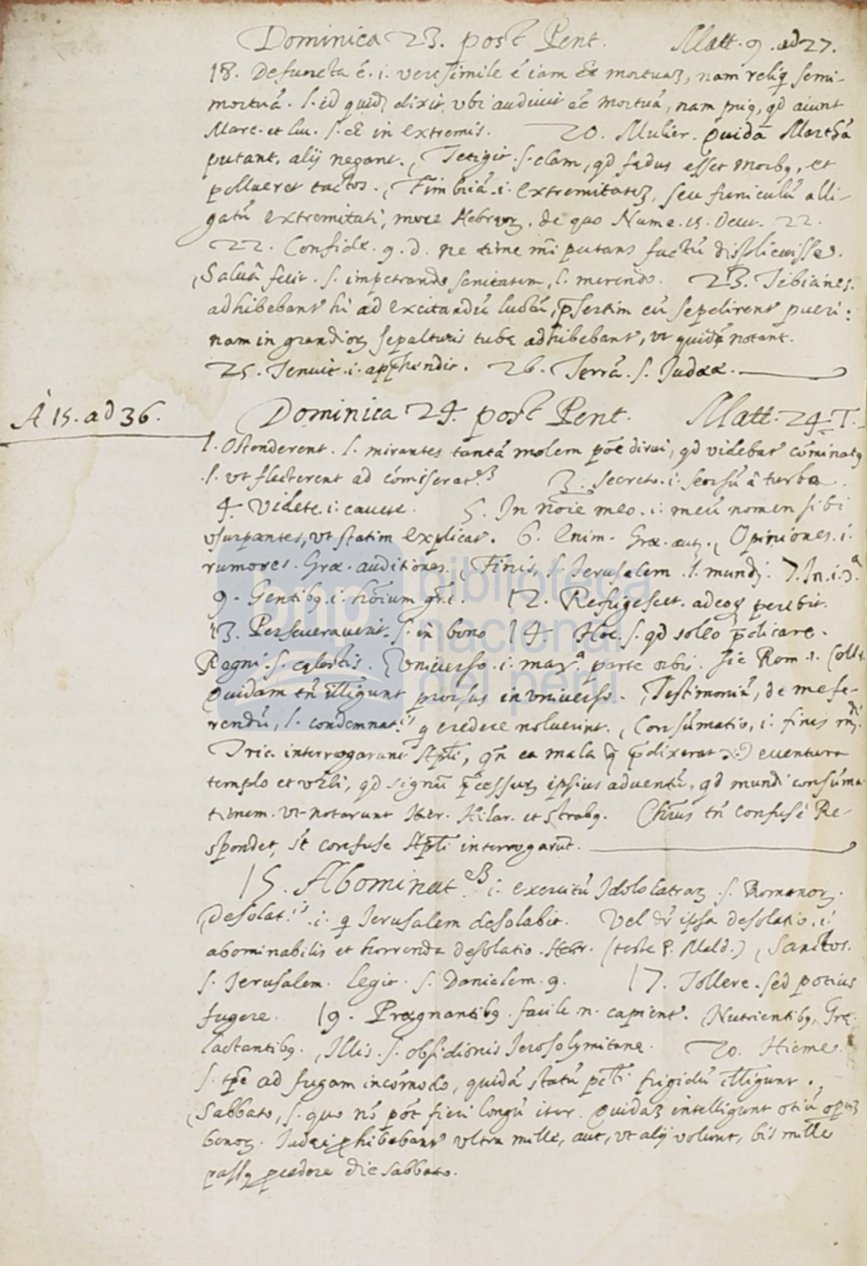 Dominica 23. post Pent. Matt. 9. ad 27.
18. Defuncta ē. i. verisimile ē iam mortuaʒ, nam reliq̃ semi-
mortuā. l. id quidē dixit, vbi audiuit eē mortuā, nam priq, qd aiunt
Marc. et luc. l. in extremis. 20. Mulier. Quidā Marthā
putant, alij negant. Tetigit. s. clam, qd fædus esset morbq, et
pollueret tactos. Fimbriā. i. extremitateʒ, seu funiculū alli-
gatū extremitati, more Hebræoꝝ, de quo Nume. 15. Deut. 22.
22. Confide. q. d. ne time mī putans factū displicuisse.
Saluā fecit. s. impetrando sanitatem, l. merendo. 23. Tibicines.
adhibebant hi ad excitandū luctū, p̄sertim cū sepelirent pueri:
nam in grandioꝝ sepulturis tubæ adhibebant, vt quidā notant.
25. Tenuit. i. apprehendit. 26. Terrā. s. Judææ.
A 15. ad 36.
Dominica 24. post Pent. Matt. 24. T.
1. Ostenderent. l. mirantes tantā molem põe dirui, qd videbat cōminatq
.l. vt flecterent ad cōmiserat. 3. Secreto. i. seorsū â turba.
4. Videte. i. cauete. 5. In noīe meo. i. meū nomen sibi
vsurpantes, vt statim explicat. 6. Enim. Græ. aut. Opiniones. i.
rumores. Græ. auditiones. Finis. s. Jerusalem. l. mundi. 7. In. i.
9. Gentibq. i. hoīum gñi. 12. Refrigescet. adeoq peribit.
13. Perseverauerit. s. in bono 14. Hoc. s. qd soleo p̄dicare.
Regni. s. cęlestis. Vniverso. i. maxª parte orbis. sic Rom. 1. Coll.
Quidam tñ itlligunt prorsus in vniverso. Testimoniū, de me fe-
rendū, l. condemnat. q credere noluerint. Consūmatio, i. finis
Tria interrogarunt Apli, qñ ea mala q p̄dixerat eventura
templo et vrbi, qd signū p̄cessurꝝ ipsius aduentū, qd mundi consūma-
tionem. vt notarunt Hier. Hilar. et strabq. Chrūs tñ confusè Re-
spondet, st confuse Apli interrogarūt.
15. Abominat. i. exercitū Idololatraꝝ s. Romanoꝝ.
Desolat. i. q Jerusalem desolabit. Vel ipsa desolatio. i.
abominabilis et horrenda desolatio. Hebr. (teste P. Mald.) Sanctos.
s. Jerusalem. Legit. s. Danielem. 9. 17. Tollere. sed potius
fugere. 19. Prægnantibq. facile n. capient. Nutrientibq. Græ.
lactantibq. Illis. s. obsidionis Jerosolymitanæ. 20. Hieme.
s. tp̄e ad fugam incōmodo, quidā statū frigidū itlligunt.
Sabbato, s. quo nō pōt fieri longū iter. Quidaʒ intelligunt otiū operꝝ
bonoꝝ. Judæi prohibebant vltra mille, aut, vt alij volunt, bis mille
passq p̄cedere die sabbato.
biblioteca
nacional
del perú